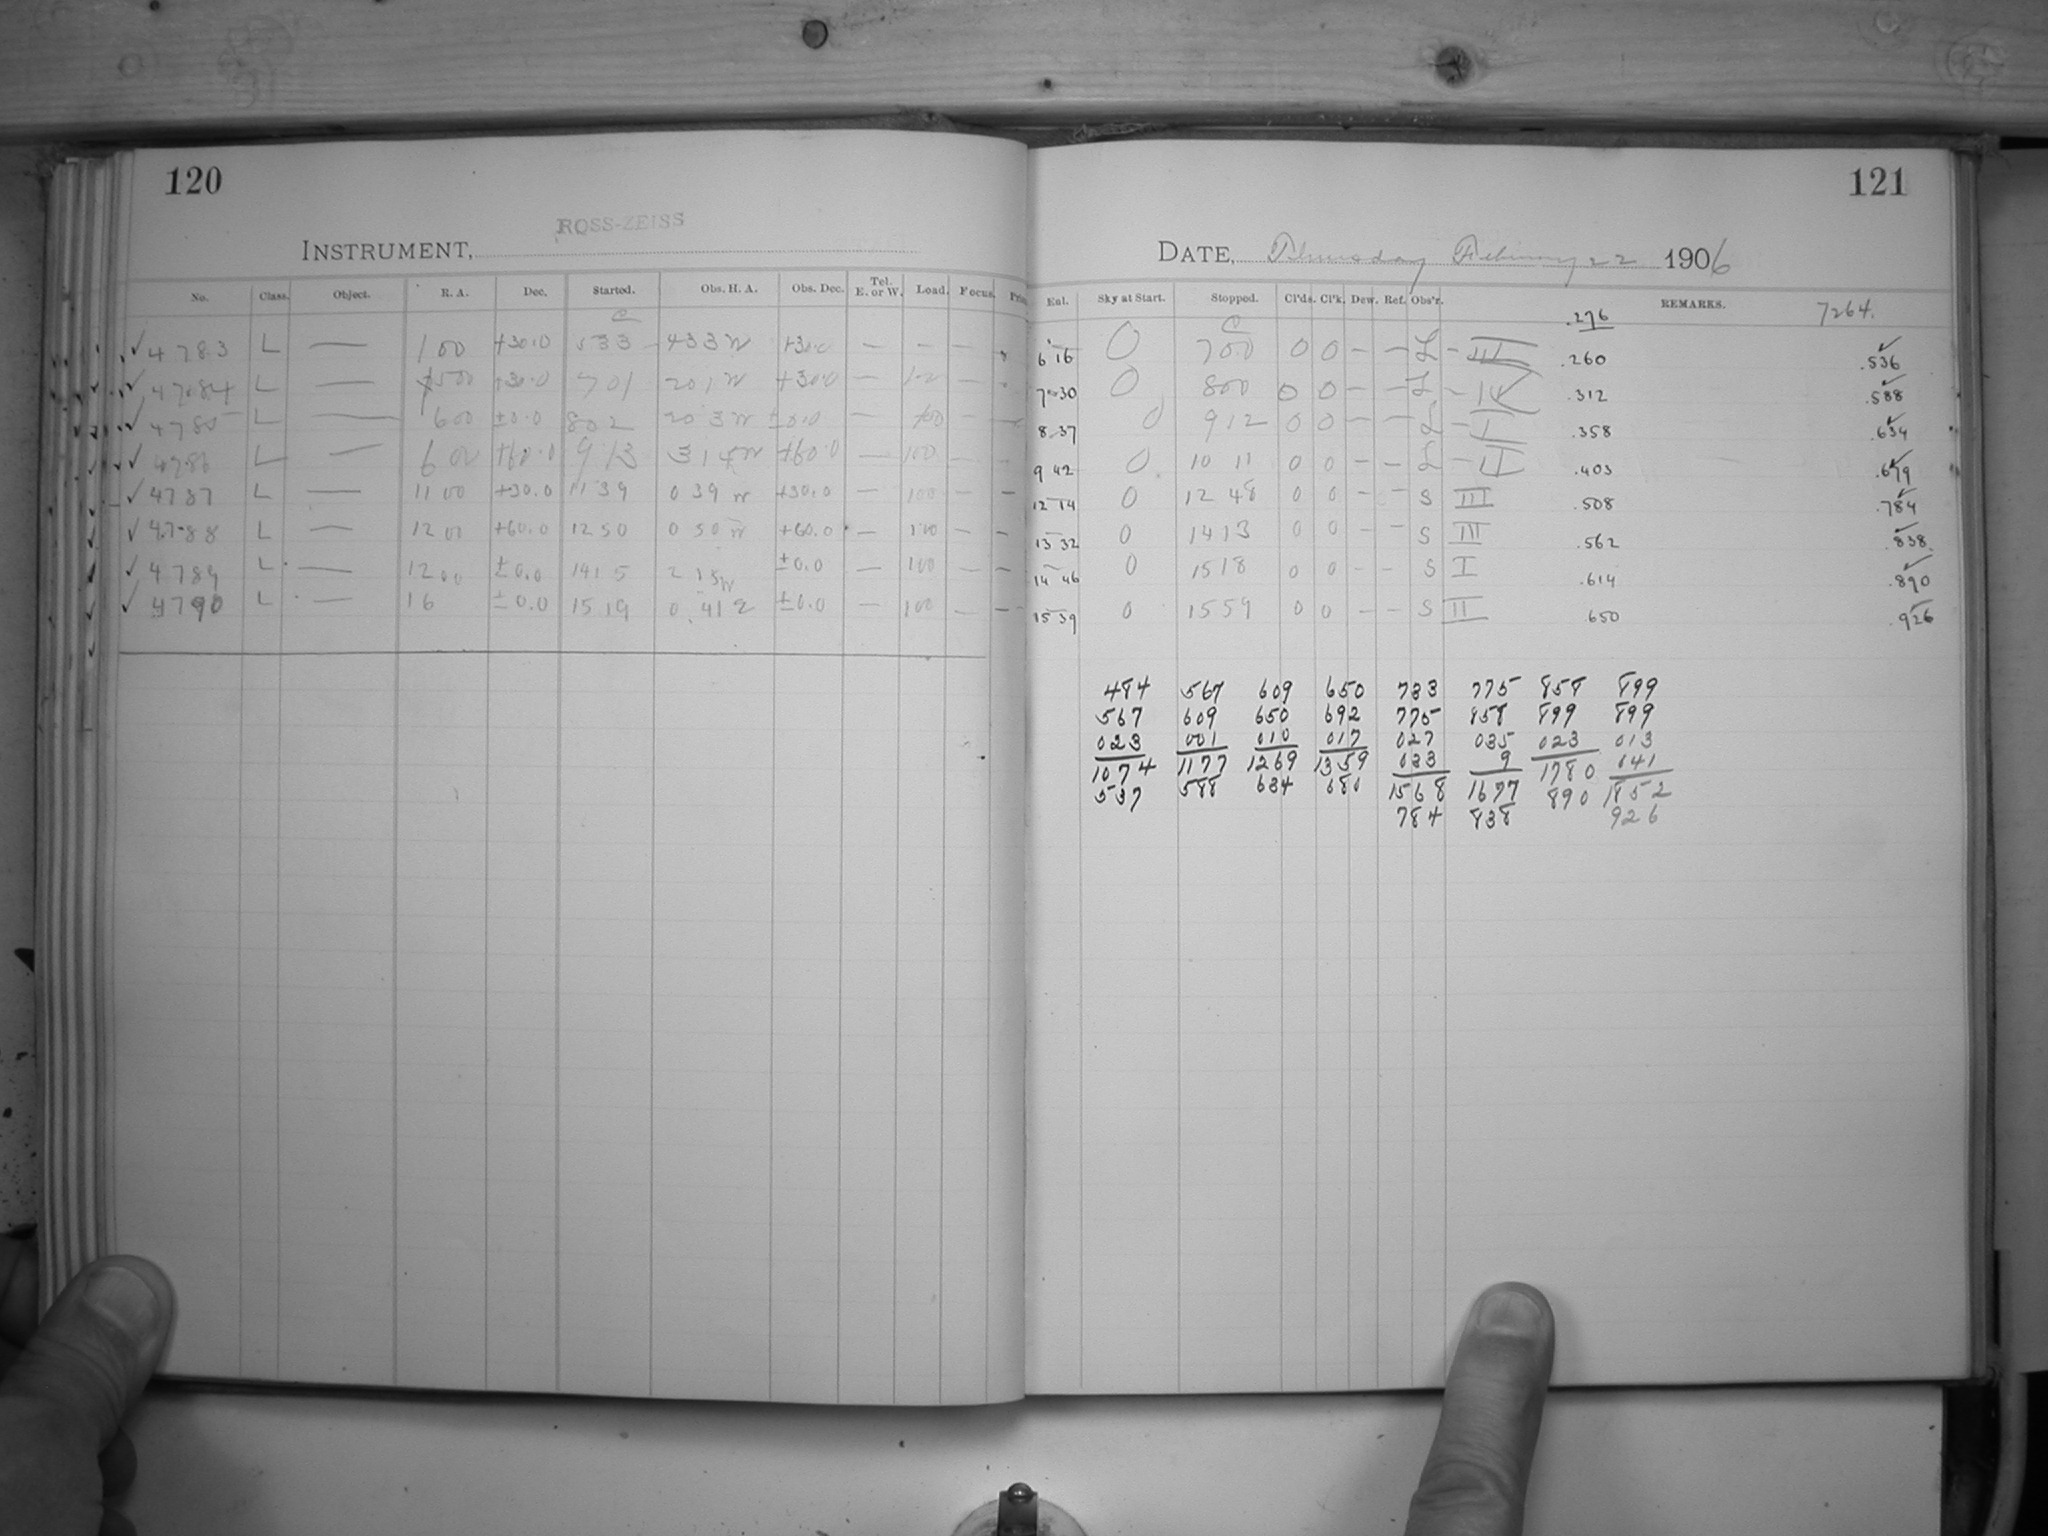 120
ROSS-ZEISS
INSTRUMENT,
No. Class. Object. R. A. Dec. Started. Obs. H. A. Obs. Dec. Tel. E. or W. Load. Focus.
4783 L — 1 00 +30.0 5 33 4 33 W +30.0 — — —
4784 L — 5 00 +30.0 7 01 2 01 W +30.0 — —
4785 L — 6 00 ±0.0 8 02 2 03 W ±0.0 — 100 —
4786 L — 6 00 +60.0 9 13 3 14 W +60.0 — 100 —
4787 L — 11 00 +30.0 11 39 0 39 W +30.0 — 100 — —
4788 L — 12 00 +60.0 12 50 0 50 W +60.0 — 100 — —
4789 L — 12 00 ±0.0 14 15 2 15 W ±0.0 — 100 — —
4790 L — 16 ±0.0 15 19 0 41 E ±0.0 — 100 — —
121
DATE, Thursday February 22 1906
Sky at Start. Stopped. Cl'ds. Cl'k. Dew. Ref. Obs'r. REMARKS.
.276 7264.
6 16 0 7 00 0 0 — — L — III .260 .536
7 30 0 8 00 0 0 — — L — IV .312 .588
8 37 0 9 12 0 0 — — L — I .358 .634
9 42 0 10 11 0 0 — — L — II .403 .679
12 14 0 12 48 0 0 — — S III .508 .784
13 32 0 14 13 0 0 — — S III .562 .838
14 46 0 15 18 0 0 — — S I .614 .890
15 39 0 15 59 0 0 — — S II .650 .926
484 567 609 650 733 775 858 899
567 609 650 692 775 858 899 899
023 001 010 017 027 035 023 013
1074 1177 1269 1359 033 9 1780 041
537 588 634 680 1568 1677 890 1852
784 838 926